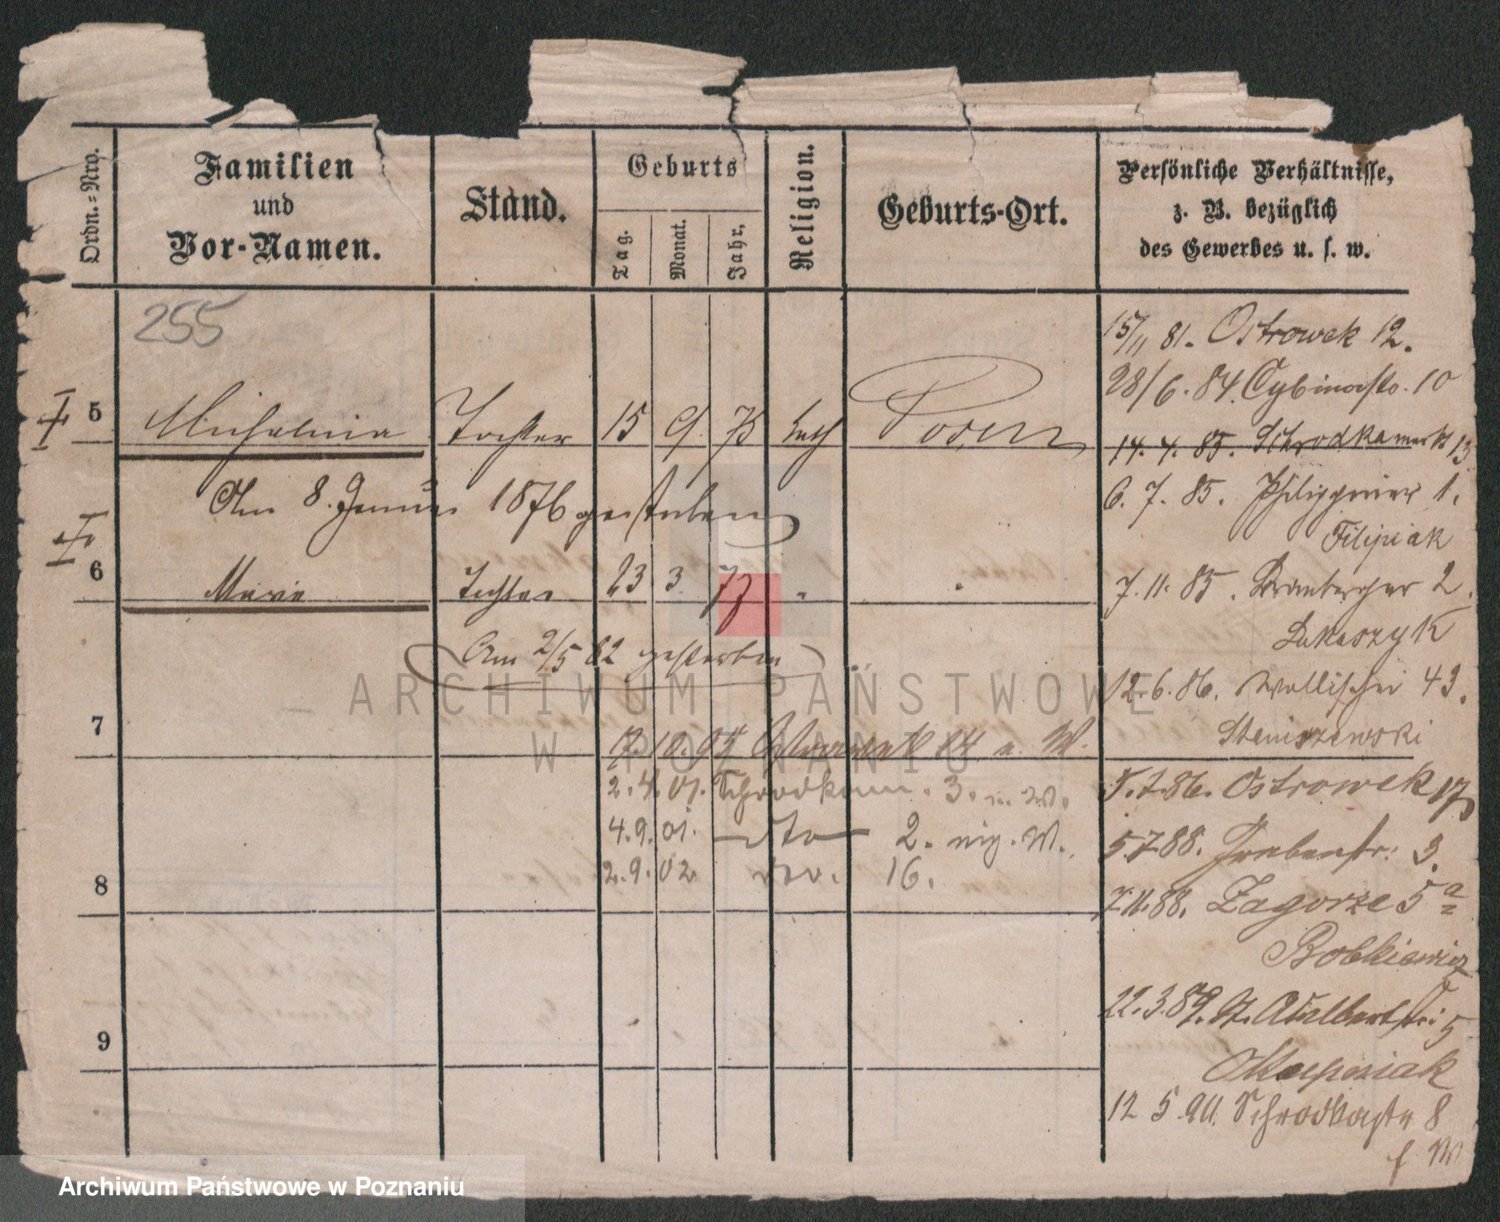 Ordn.-Nro.
Familien
und
Vor-Namen.
Stand.
Geburts
Tag.
Monat.
Jahr.
Religion.
Geburts-Ort.
Persönliche Verhältnisse,
z. B. bezüglich
des Gewerbes u. s. w.
255
5 Michalina Tochter 15 9 75 kath Posen
Am 8. Januar 1876 gestorben
6 Marie Tochter 23 3 77 " "
Am 2/5 82 gestorben
7
17.10.94 Ostrowek 14 u. W.
2.4.01. Schrodkam. 3. u. W.
4.9.01. dto 2. eig. W.
2.9.02 16.
8
9
15/11 81. Ostrowek 12.
28/6.84. Cybinastr. 10
14.4.85. Schrodkamarkt 13
6.7.85. Philippiner 1.
Filipiak
7.11.85. Bromberger 2.
Lukaszyk
12.6.86. Wallischei 43.
Staniszewski
5.7.86. Ostrowek 17
5.7.88. Grabenstr. 3.
7.11.88. Zagorze 5a
Bobkiewicz
22.3.89. St. Adalbertstr. 5
Kasprziak
12 5.90. Schrodkastr 8
ARCHIWUM PAŃSTWOWE
W POZNANIU
Archiwum Państwowe w Poznaniu